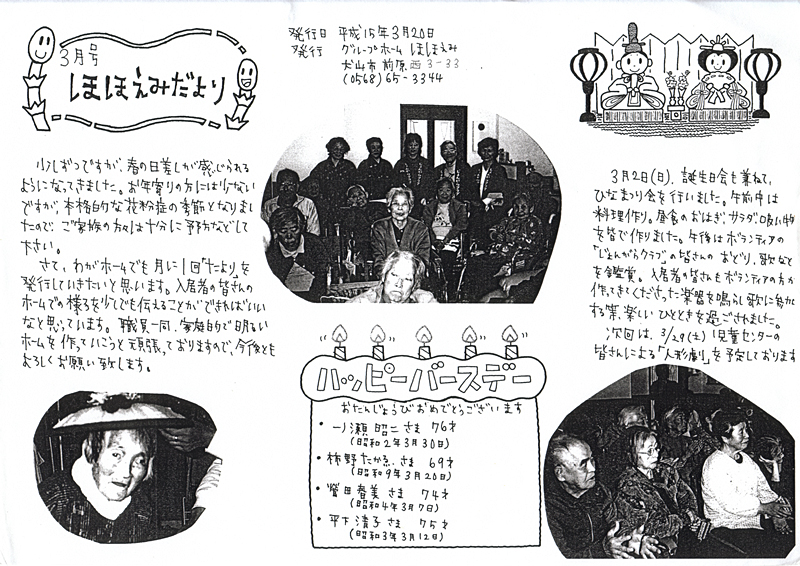 3月号
ほほえみだより
発行日 平成15年3月20日
発行 グループホーム ほほえみ
犬山市前原西3-33
(0568)65-3344
少しずつですが、春の日差しが感じられる
ようになってきました。お年寄りの方には少ない
ですが、本格的な花粉症の季節となりまし
たので、ご家族の方々は十分に予防などして
下さい。
さて、わがホームでも月に1回「たより」を
発行していきたいと思います。入居者の皆さんの
ホームでの様子を少しでも伝えることができればいい
なと思っています。職員一同、家庭的で明るい
ホームを作っていこうと頑張っておりますので、今後とも
よろしくお願い致します。
3月2日(日)、誕生日会も兼ねて、
ひなまつり会を行いました。午前中は
料理作り。昼食のおはぎ、サラダ、吸い物
を皆で作りました。午後はボランティアの
「じょんがらクラブ」の皆さんの おどり、歌などを
を鑑賞。入居者の皆さんもボランティアの方が
作ってきてくださった楽器を鳴らし歌に参加
する等、楽しいひとときを過ごされました。
次回は、3/29(土) 児童センターの
皆さんによる「人形劇」を予定しております
ハッピーバースデー
おたんじょうびおめでとうございます
・一ノ瀬 昭二 さま 76才
(昭和2年3月30日)
・柿野たかゑ さま 69才
(昭和9年3月20日)
・菅田春美 さま 74才
(昭和4年3月7日)
・平下清子 さま 75才
(昭和3年3月12日)